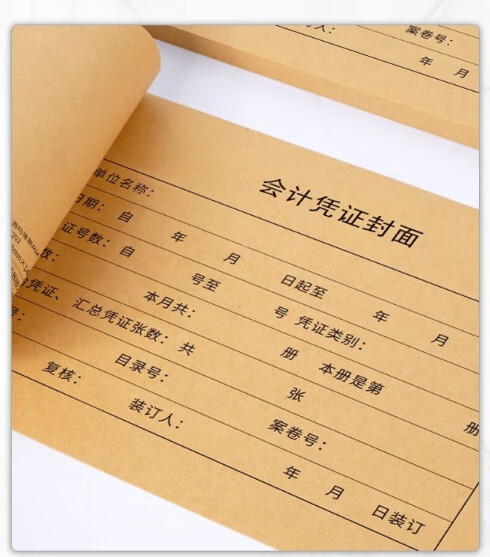 案卷号：
年 月
会计凭证封面
单位名称：
日期： 自 年 月 日起至 年 月
证号数： 自 号至 号 凭证类别：
数： 本月共： 册 本册是第 册
凭证、汇总凭证张数：共 张
号： 目录号： 案卷号：
复核： 装订人： 年 月 日装订